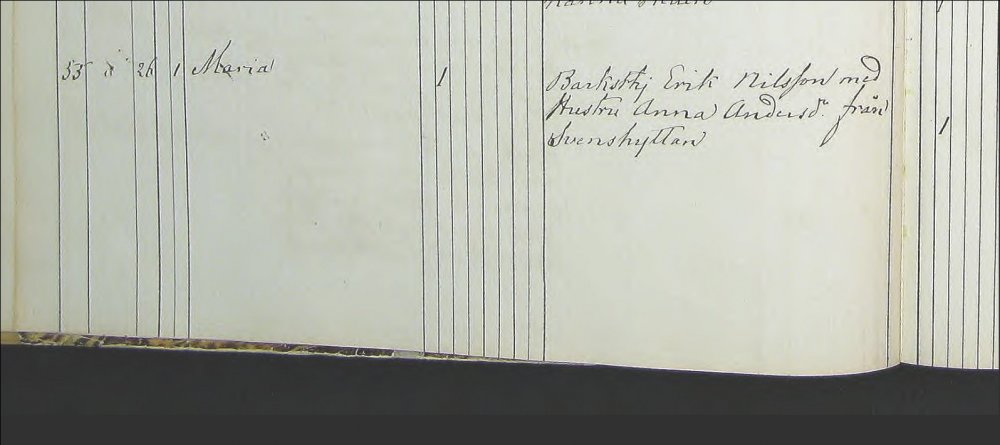 53 d° 26 1 Maria 1 Barksthj Erik Nilsson med
Hustru Anna Andersd.r från
Svenshyttan
1